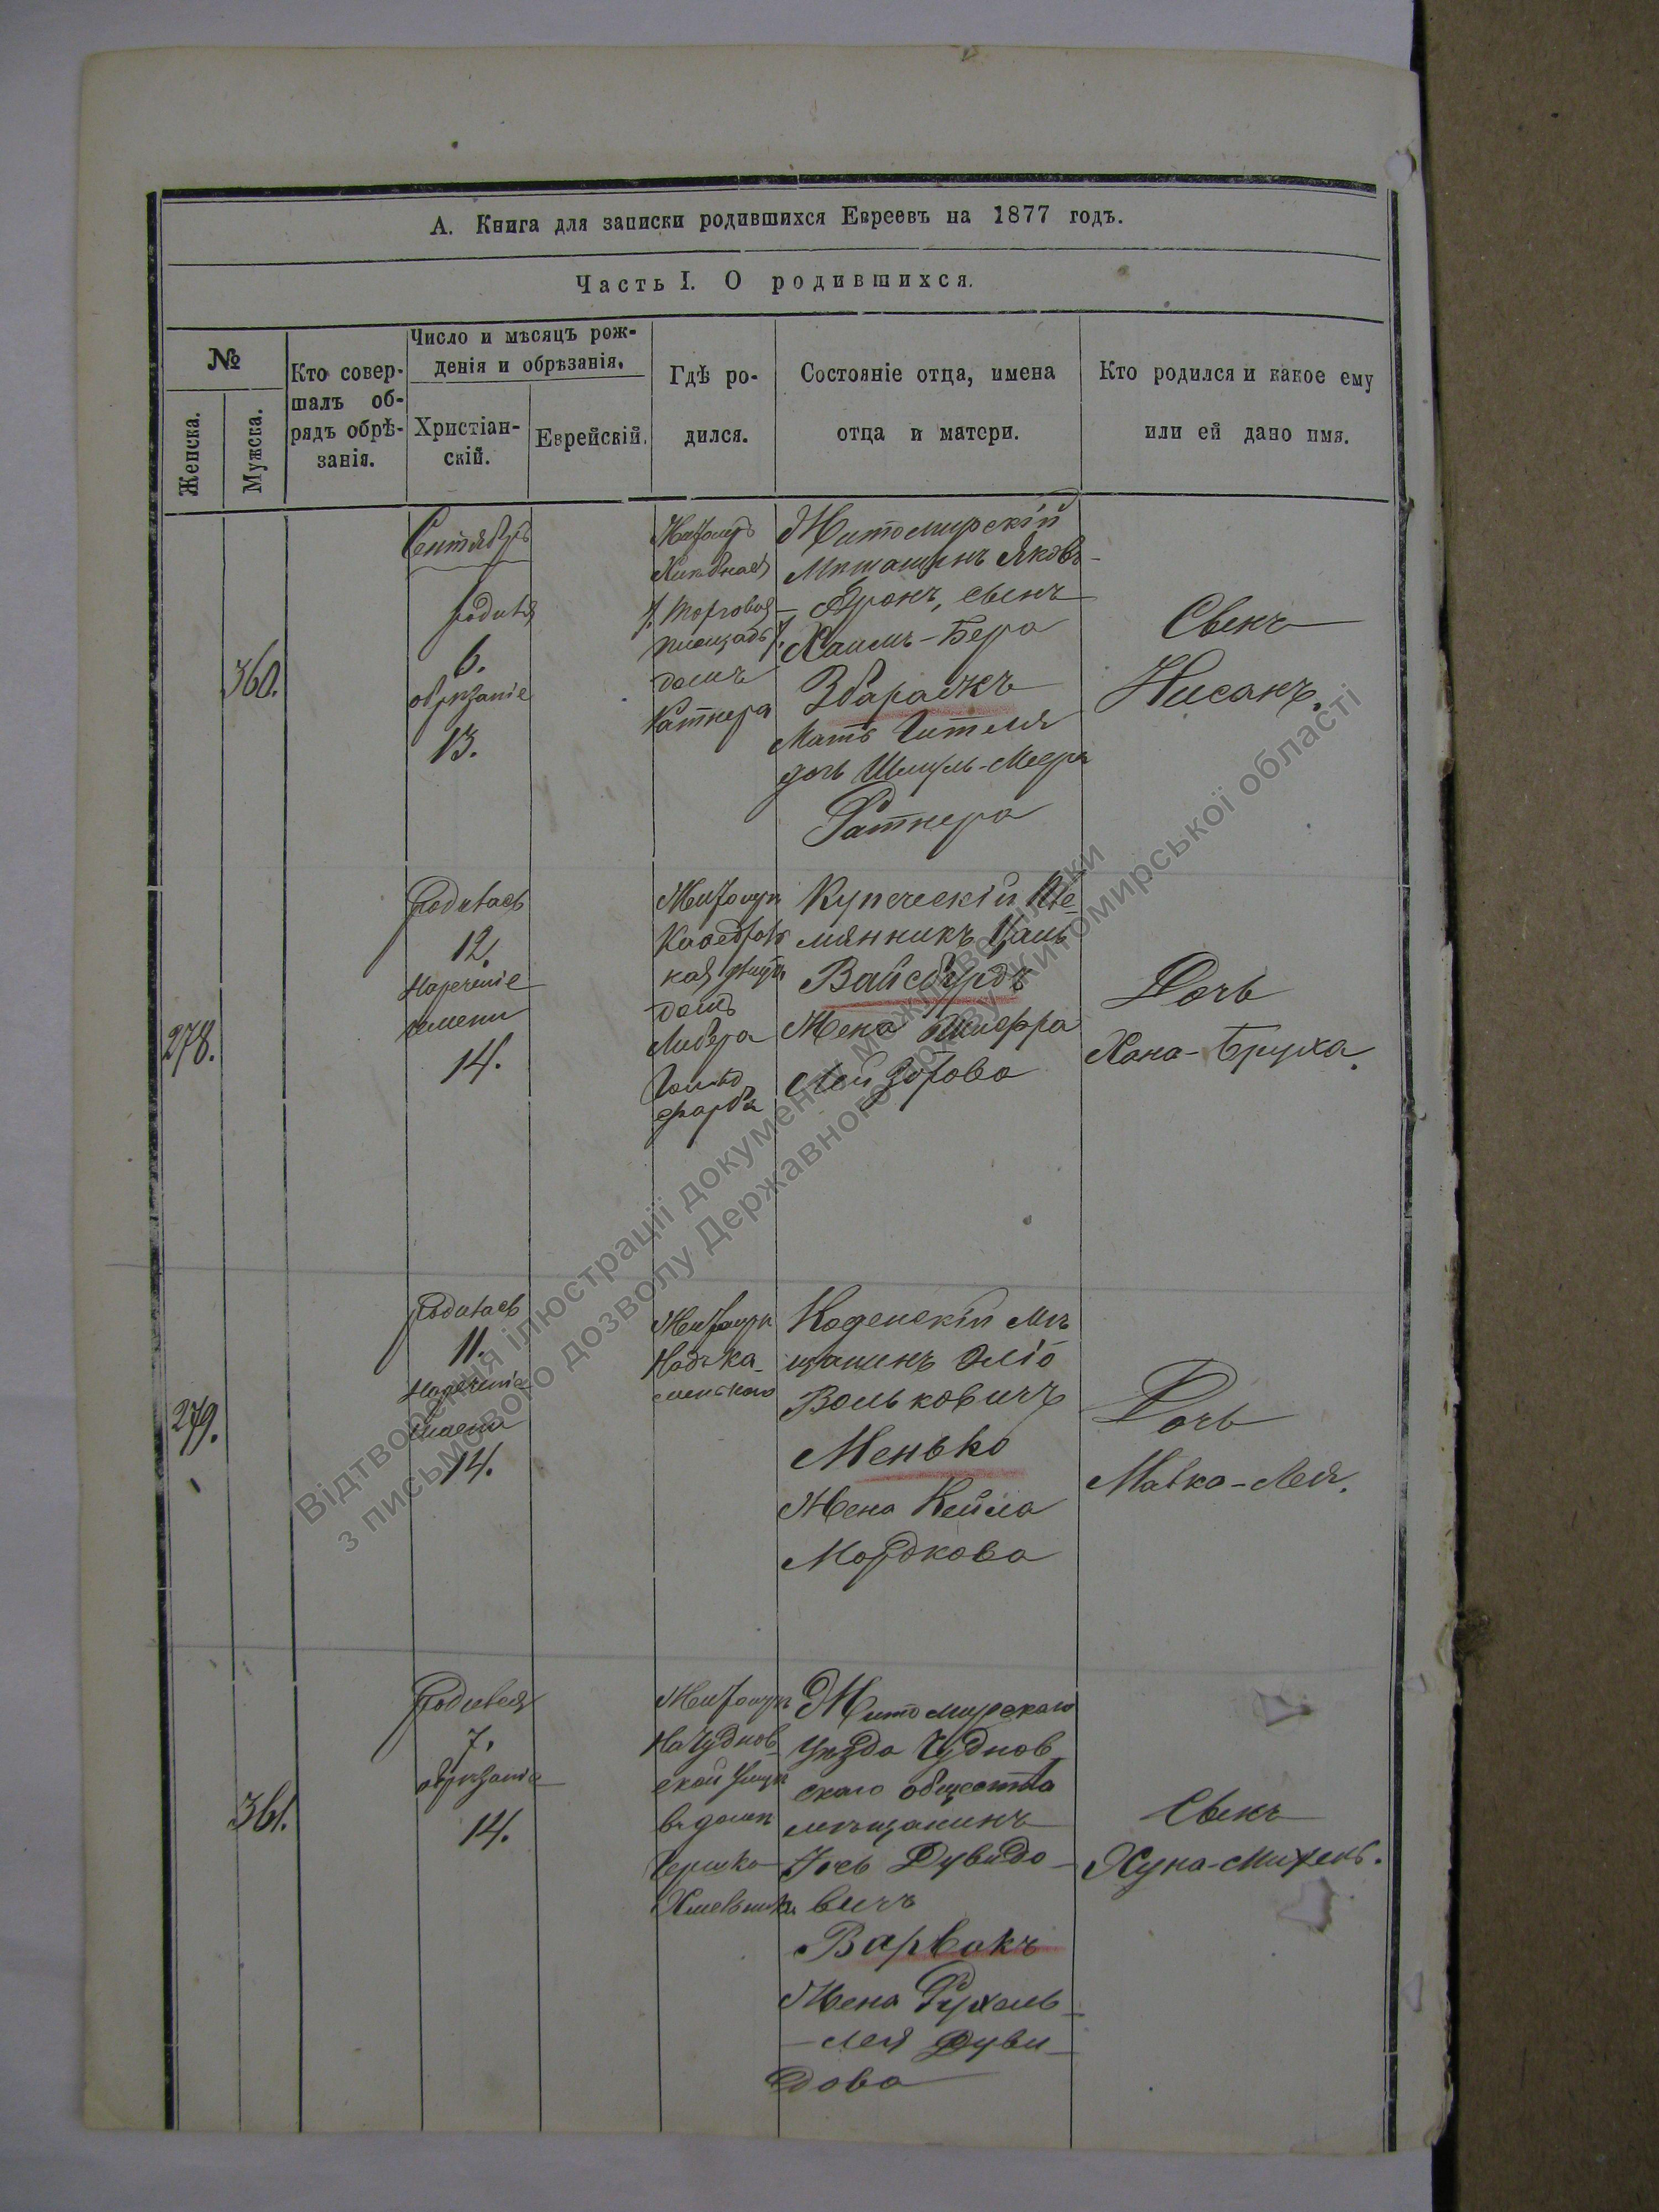 А. Книга для записки родившихся Евреевъ на 1877 годъ.
Часть I. О родившихся.
№
Женска.
Мужска.
Кто совер-
шалъ об-
рядъ обрѣ-
занія.
Число и мѣсяцъ рож-
денія и обрѣзанія.
Христіан-
скій.
Еврейскій.
Гдѣ ро-
дился.
Состояніе отца, имена
отца и матери.
Кто родился и какое ему
или ей дано имя.
360.
Сентябрь
родился
6.
обрѣзаніе
13.
Житомиръ
торговая
площадь
домъ
Ратнера
Житомирскій
Мѣщанинъ Яковъ-
Аронъ, сынъ
Хаимъ-Бера
Збаражъ
Мать Гителя
дочь Шмуль-Меера
Ратнера
Сынъ
Нисанъ.
278.
Родилась
12.
Нареченіе
имени
14.
Житомиръ
Кафедраль
ная улица
домъ
Либера
Гольд
фарба
Купеческій Пле-
мянникъ
Вайсбурдъ
Жена Шифра
Лейзорова
Дочь
Хана-Бруха.
279.
Родилась
11.
Нареченіе
имени
14.
Житомиръ
Надъ Ка-
менкою
Коденскій мѣ
щанинъ Эліо
Вольковичъ
Менько
Жена Кейла
Мордкова
Дочь
Малка-Лея.
361.
Родився
7.
обрѣзаніе
14.
Житомиръ
На Чуднов
ской улицѣ
въ домѣ
Гершко
Хмельника
Житомирскаго
уѣзда Чуднов
скаго общества
мѣщанинъ
Іось Дувидо-
вичъ
Варвакъ
Жена Рухель-
-Лея Дуви-
дова
Сынъ
Хуна-Михель.
Відтворення ілюстрації документу можливе тільки
з письмового дозволу Державного архіву Житомирської області